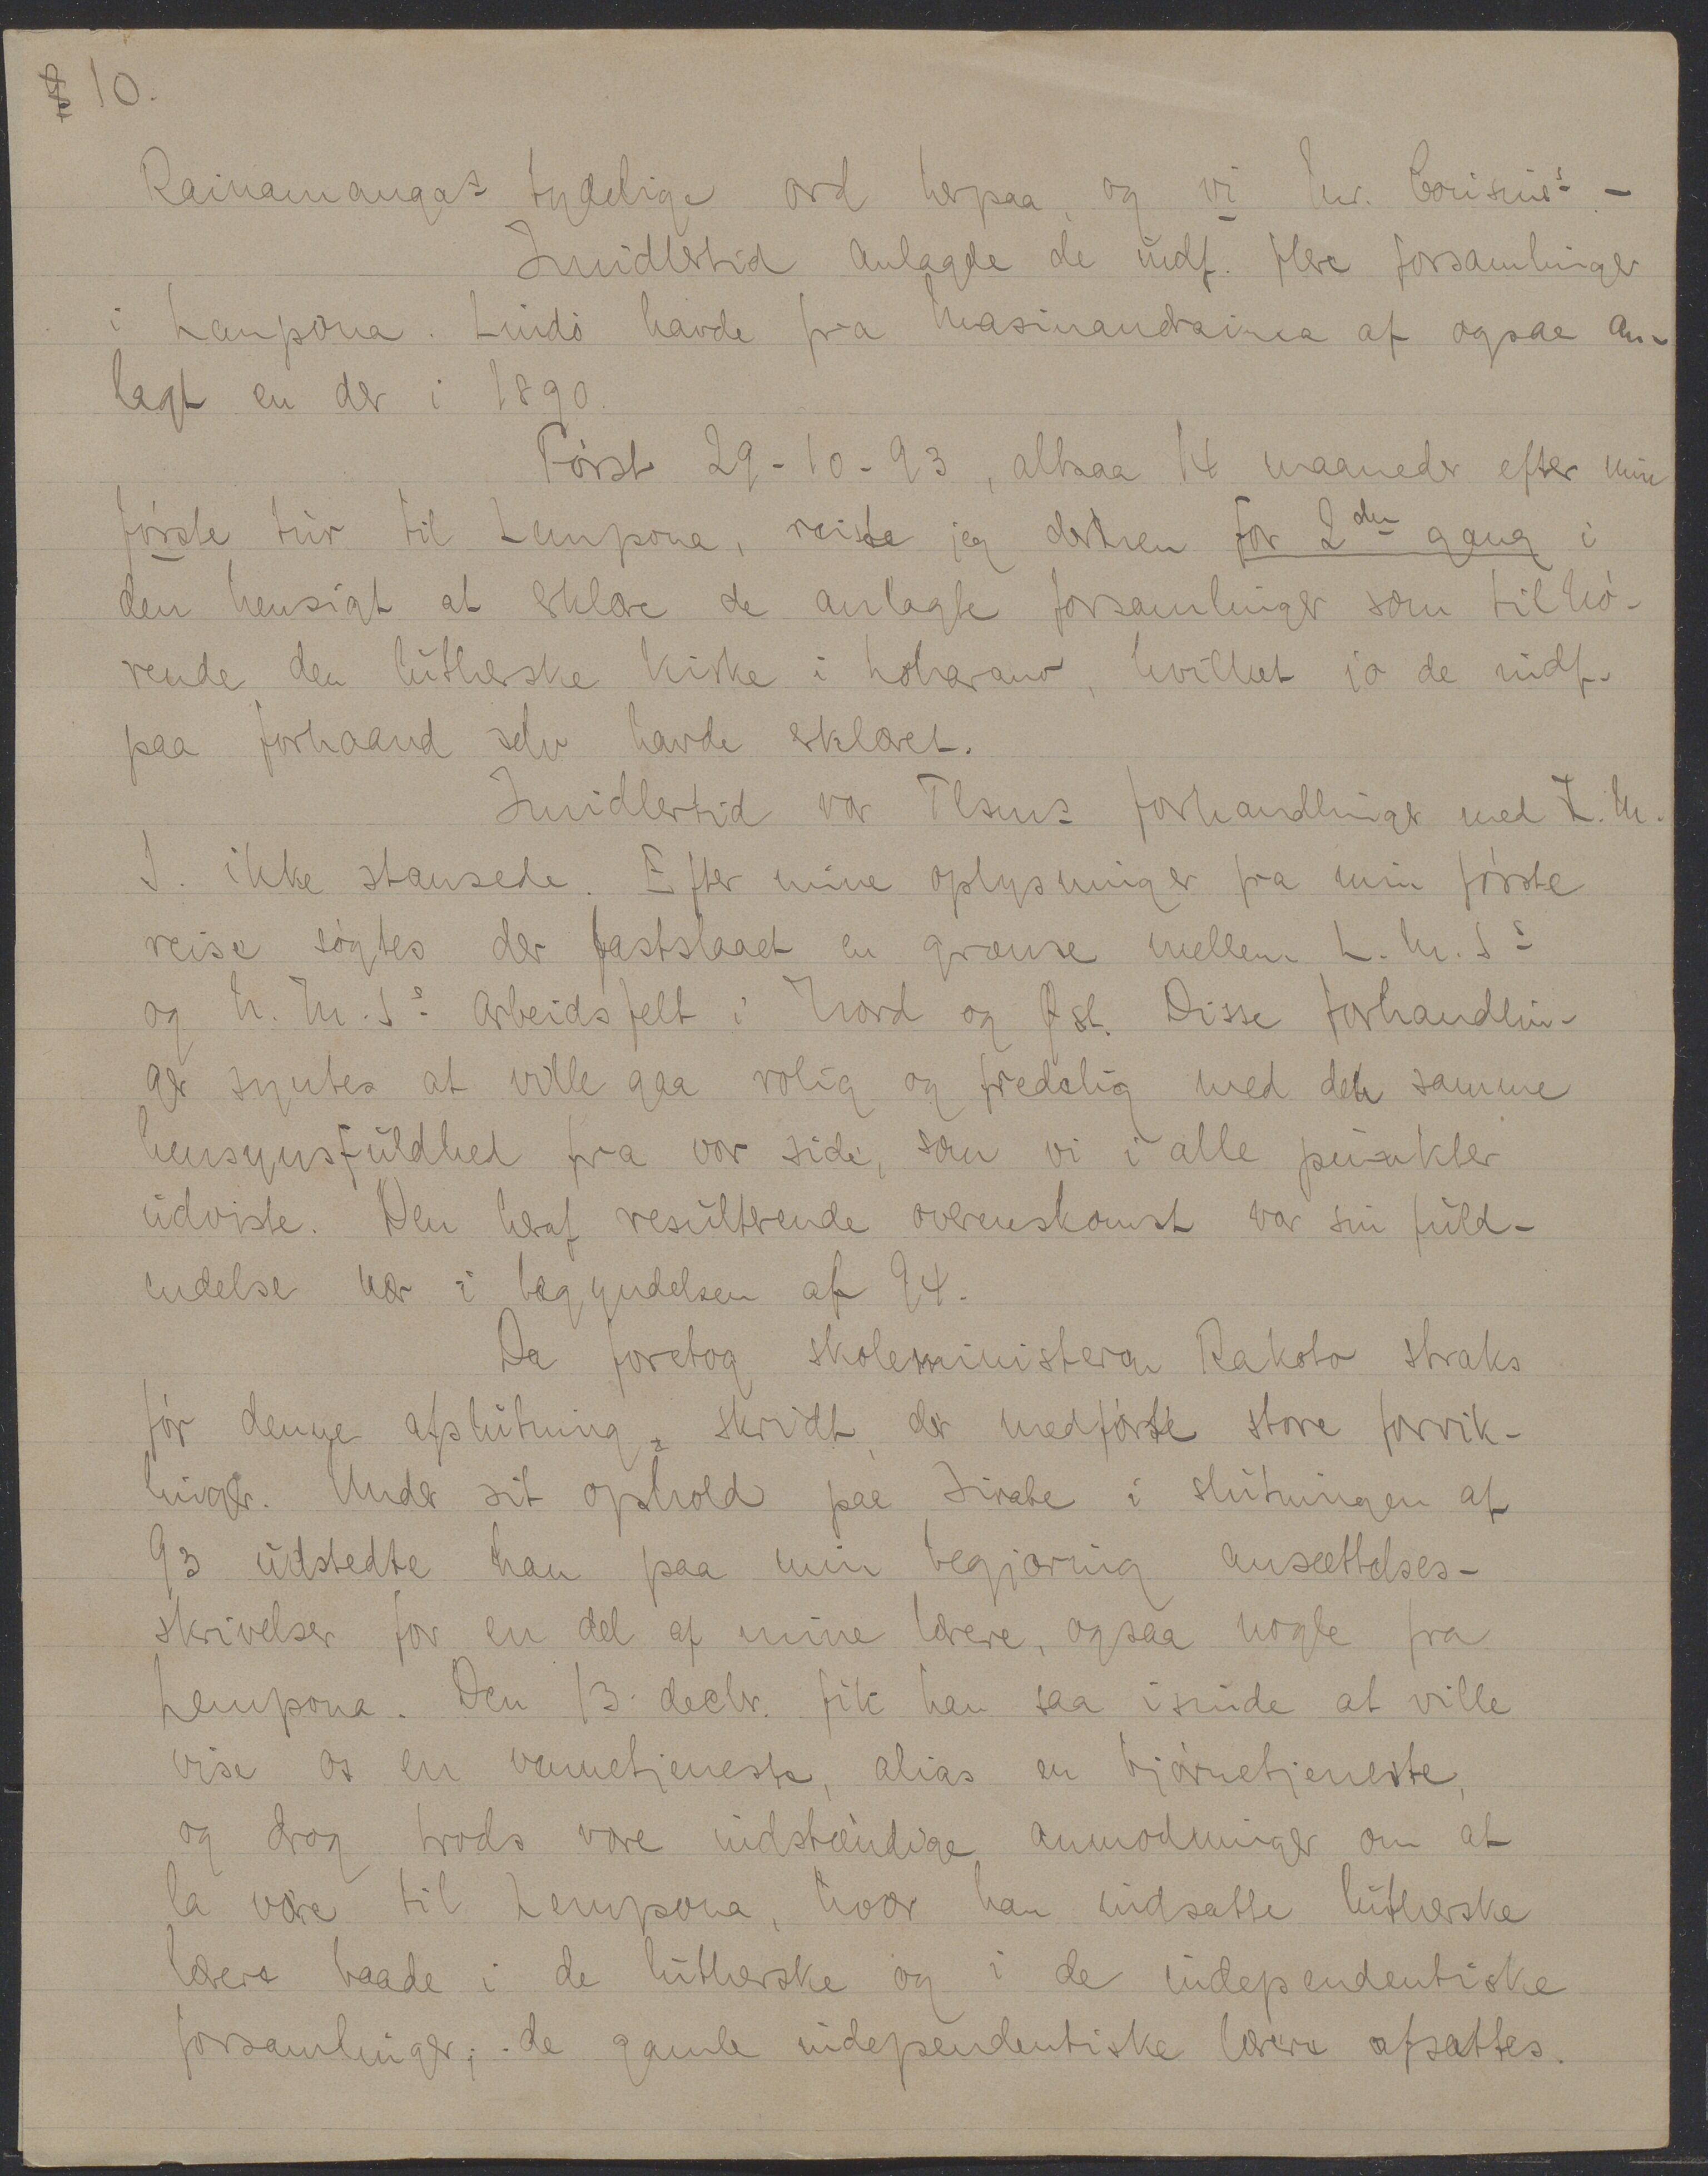 10.
Rainamangas tydelige ord herpaa, og vi Mr. Cousins. -
Imidlertid anlagde de indf. flere forsamlinger
i Lempona. Lindö havde fra Masinandraina af ogsaa an-
lagt en der i 1890.
Först 29-10-93, altsaa 14 maaneder efter min
förste tur til Lempona, reiste jeg derhen for 2den gang i
den hensigt at erklære de anlagte forsamlinger som tilhö-
rende den lutherske kirke i Loharano, hvilket jo de indf.
paa forhaand selv havde erklæret.
Imidlertid var Tlsms forhandlinger med L.M.
S. ikke stansede. Efter mine oplysninger fra min förste
reise sögtes der fastslaaet en grænse mellem L.M.Ss
og N.M.Ss arbeidsfelt i Nord og Øst. Disse forhandlin-
ger syntes at ville gaa rolig og fredelig med den samme
hensynsfuldhed fra vor side, som vi i alle punkter
udviste. Den heraf resulterende overenskomst var sin fuld-
endelse nær i begyndelsen af 94.
Da foretog skoleministeren Rakoto straks
för denne afslutning skridt, der medförte store forvik-
linger. Under sit ophold paa Sirabe i slutningen af
93 udstedte han paa min begjæring ansættelses-
skrivelser for en del af mine lærere, ogsaa nogle fra
Lempona. Den 13. decbr. fik han saa isinde at ville
vise os en vennetjeneste, alias en björnetjeneste,
og drog trods vore indstændige anmodninger om at
la være til Lempona, hvor han indsatte lutherske
lærere baade i de lutherske og i de independentiske
forsamlinger; de gamle independentiske lærere afsattes.